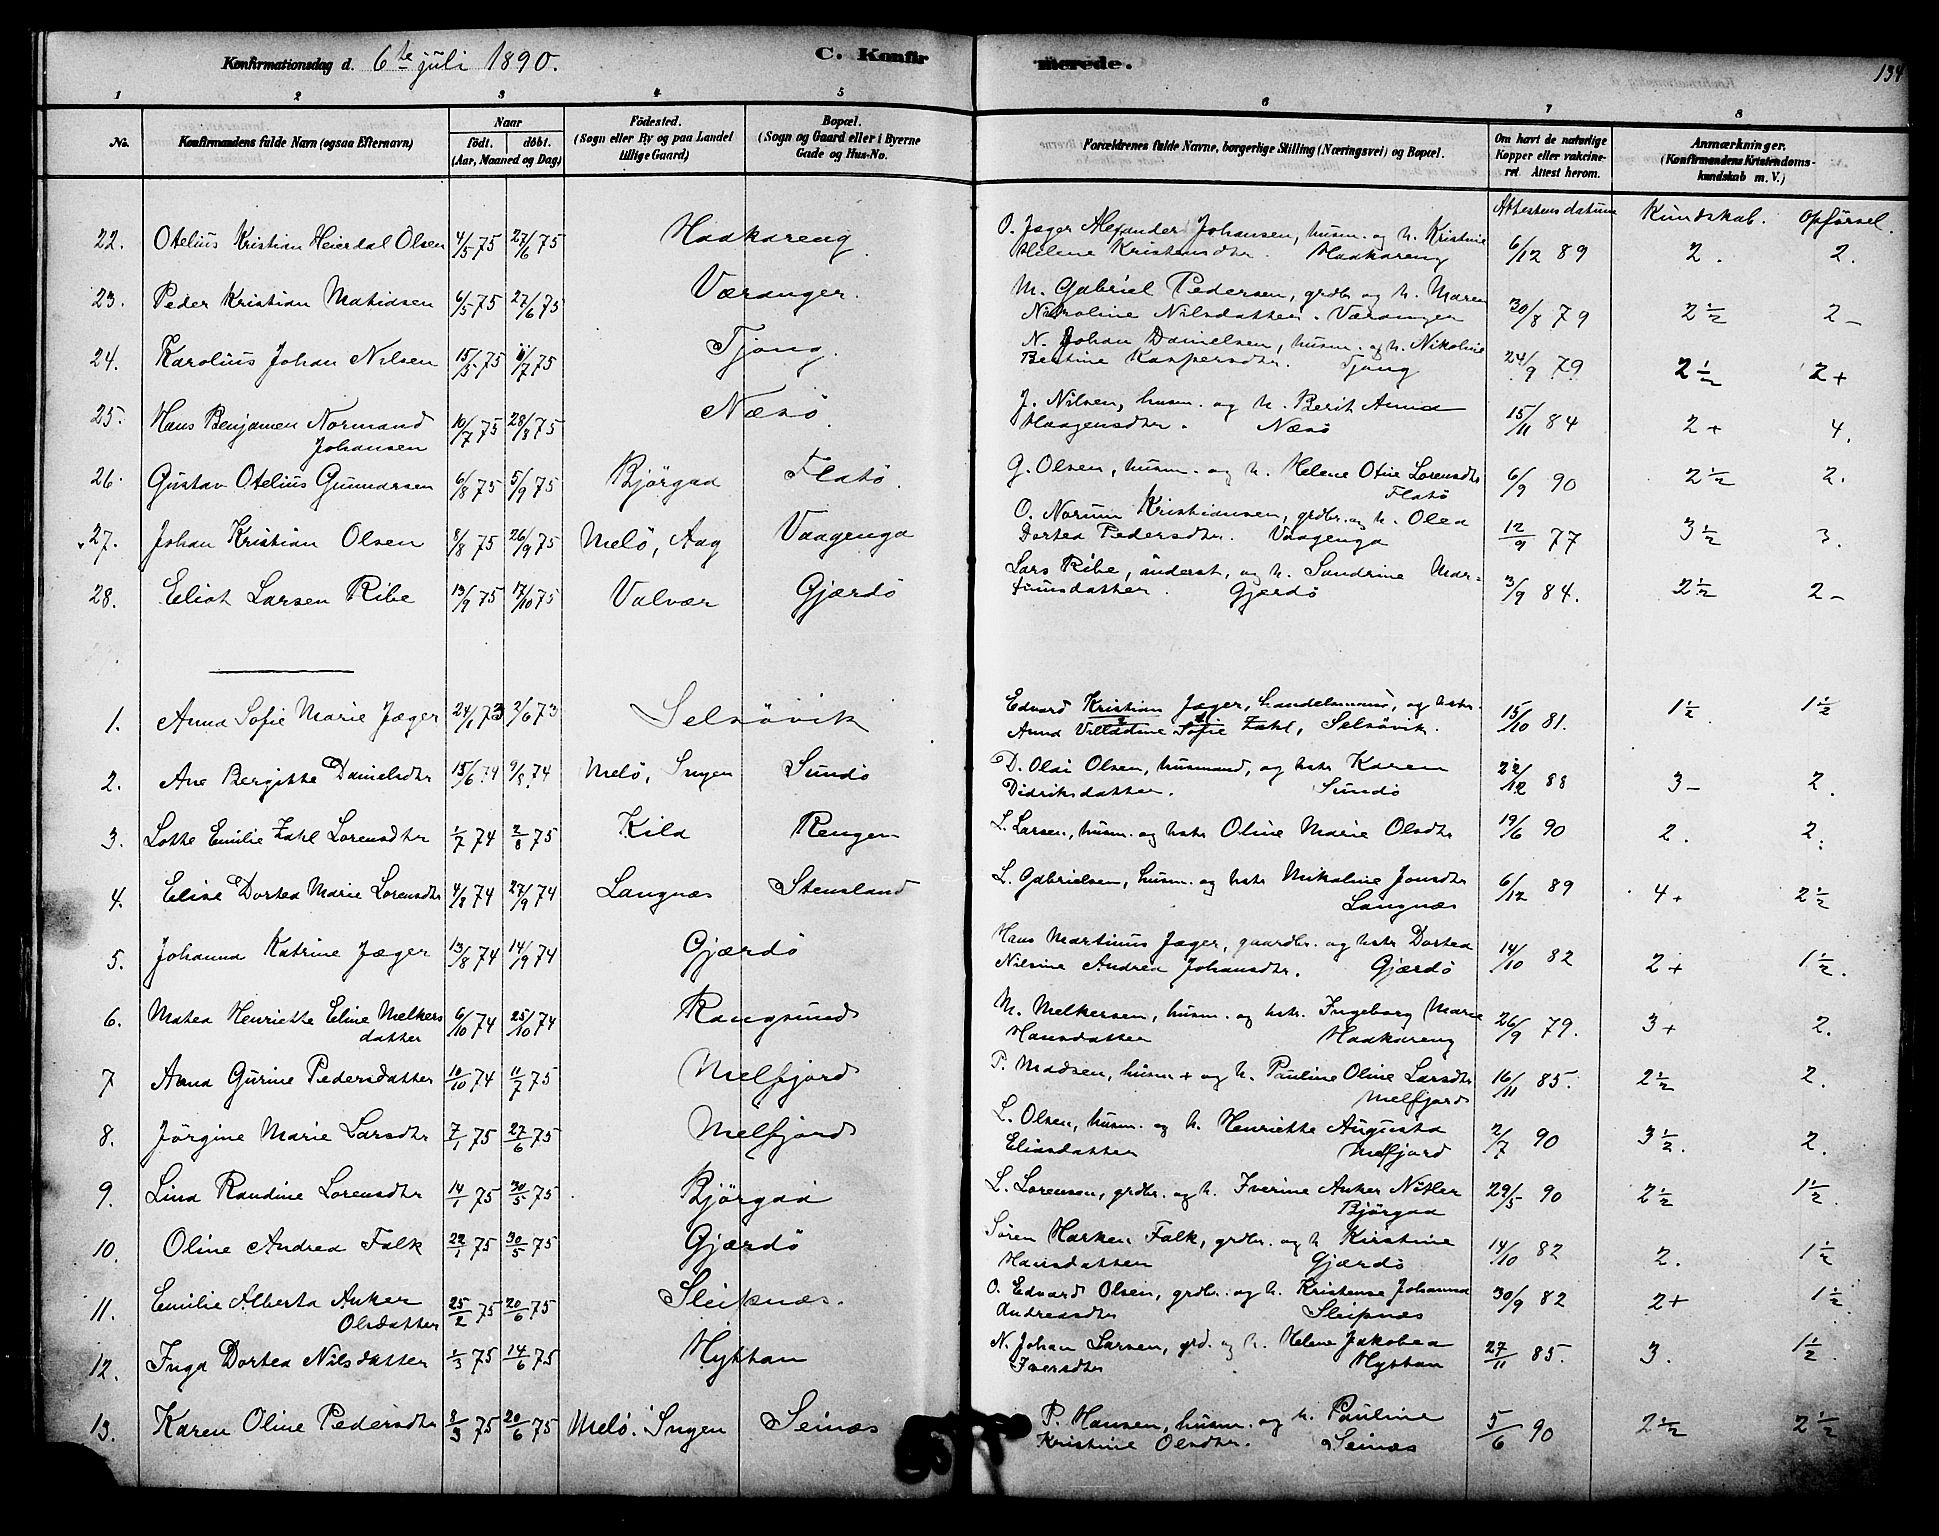 Konfirmationsdag d. 6te juli 1890. C. Konfirmerede. 134
1 2 3 4 5 6 7 8
No. Konfirmandens fulde Navn (ogsaa Efternavn) Naar födt. döbt. (Aar, Maaned og Dag) Födested. (Sogn eller By og paa Landet tillige Gaard) Bopæl. (Sogn og Gaard eller i Byerne Gade og Hus-No. Forældrenes fulde Navne, borgerlige Stilling (Næringsvei) og Bopæl. Om havt de naturlige Kopper eller vakcineret. Attest herom. Anmærkninger. (Konfirmandens Kristendomskundskab m. V.)
Attestens datum Kundskab. Opførsel.
22. Otelius Kristian Heierdal Olsen 4/5 75 27/6 75 Haakareng O. Jæger Alexander Johansen, husm. og h. Kristine
Helene Kristensdtr. Haakareng 6/12 89 2. 2.
23. Peder Kristian Matidsen 6/5 75 27/6 75 Væranger. M. Gabriel Pedersen, grdbr og h. Maren
Nikoline Nilsdatter. Væranger 30/8 79 2 1/2 2-
24. Karolius Johan Nilsen 15/5 75 11/7 75 Tjong. N. Johan Danielsen, husm. og h. Nikoline
Bertine Kaspersdtr. Tjong 24/9 79. 2 1/2 2+
25. Hans Benjamen Normand
Johansen 10/7 75 28/8 75 Næsö. J. Nilsen, husm. og h. Berit Anna
Haagensdtr. Næsö 15/11 84 2+ 4.
26. Gustav Otelius Gunnarsen 6/8 75 5/9 75 Björgaa Flatö. G. Olsen, husm. og h. Helene Otine Lorensdtr
Flatö 6/9 90 2 1/2 2.
27. Johan Kristian Olsen 8/8 75 26/9 75 Melö, Aag Vaagenga O. Norum Kristiansen, grdbr. og h. Olea
Dortea Pedersdtr. Vaagenga 12/9 77 3 1/2 3.
28. Eliot Larsen Ribe 19/9 75 17/10 75 Valvær Gjærdö Lars Ribe, inderst, og h. Sandrine Mar-
tinusdatter. Gjærdö 3/9 84. 2 1/2 2-
1. Anna Sofie Marie Jæger 24/1 73 2/6 73 Selsövik Edvard Kristian Jæger, handelsmand, og hstr.
Anna Villadine Sofie Zahl, Selsövik. 15/10 81. 1 1/2 1 1/2
2. Ane Bergitte Danielsdtr 15/6 74 9/8 74 Melö, Ingen Sundö D. Olai Olsen, husmand, og hstr Karen
Didriksdatter. Sundö 22/12 88 3- 2.
3. Lotte Emilie Zahl Lorensdtr 1/7 74 2/8 75 Kila Rengen L. Larsen, husm. og hstr Oline Marie Olsdtr 19/6 90 2. 2.
4. Elise Dortea Marie Lorensdtr 4/8 74 27/9 74 Langnæs Stensland L. Gabrielsen, husm. og hstr Nikoline Jonsdtr
Langnæs 6/12 89 4+ 2 1/2
5. Johanna Katrine Jæger 13/8 74 14/9 74 Gjærdö Hans Martinus Jæger, gaardbr. og hstr Dortea
Nilsine Andrea Johansdtr. Gjærdö 14/10 82 2+ 1 1/2.
6. Matea Henriette Eline Melkers
datter 6/10 74 25/10 74 Rangsund M. Melkersen, husm. og hstr. Ingeborg Marie
Hansdatter Haakareng 26/9 79. 3+ 2.
7 Anna Gurine Pedersdatter 10/10 74 11/7 75 Melfjord P. Madsen, husm + og h. Pauline Oline Larsdtr
Melfjord 16/11 85. 2 1/2 2.
8. Jörgine Marie Larsdtr 7/1 75 27/6 75 Melfjord L. Olsen, husm. og h. Henriette Augusta
Eliasdatter Melfjord 2/7 90 3 1/2. 2.
9. Lina Randine Lorensdtr 14/1 75 30/5 75 Björgaa L. Lorensen, grdbr. og h. Iverine Anker
Björgaa 29/5 90 2 1/2 1 1/2
10. Oline Andrea Falk 22/1 75 30/5 75 Gjærdö Sören Harken Falk, grdbr. og h Kirstine
Hansdatter Gjærdö 14/10 82 2. 1 1/2
11. Emilie Alberta Anker
Olsdatter 25/2 75 20/6 75 Sleipnæs. O. Edvard Olsen, grdbr. og h. Kristense Johanna
Andreasdtr Sleipnæs 30/9 82 2+ 1 1/2
12. Inga Dortea Nilsdatter 1/3 75 14/6 75 Hyttan N. Johan Larsen, grd. og h. Helene Jakobea
Iversdtr Hyttan 27/11 85. 3. 1 1/2
13. Karen Oline Pedersdtr 8/3 75 20/6 75 Melö. Ingen Seinæs P. Hansen, husm. og h. Pauline
Kristine Olsdtr. Seinæs 5/6 90 2 1/2 2 1/2